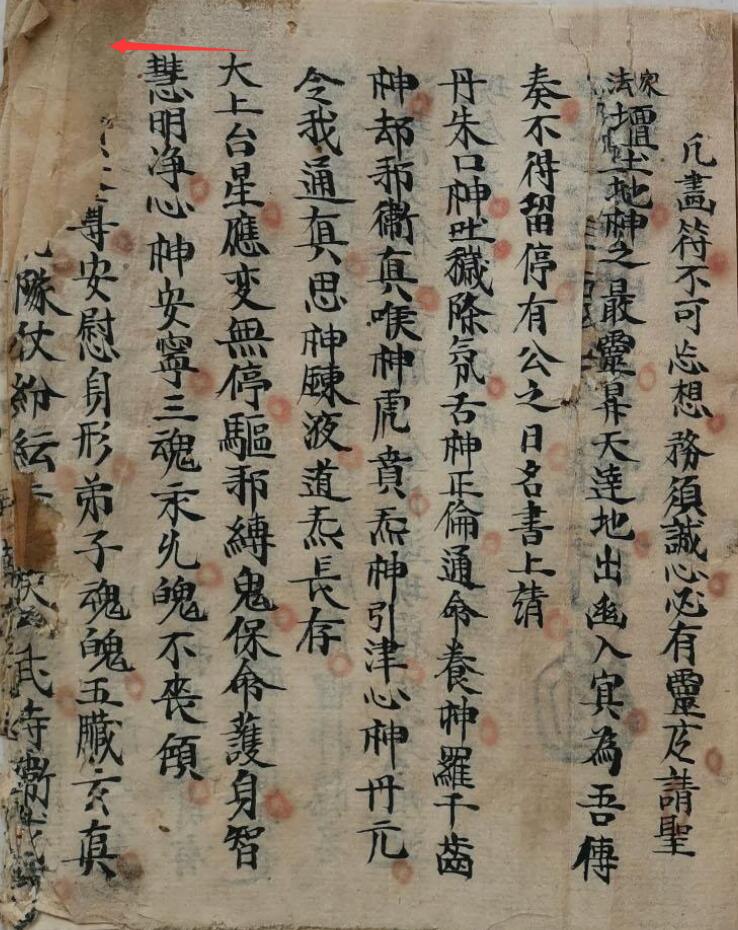 凡畫符不可忘想務須誠心必有靈应請聖
家法壇土地神之最靈昇天達地出幽入冥為吾傳
奏不得留停有公之日名書上請
丹朱口神吐穢除氛舌神正倫通命養神羅千齒
神却邪衛真喉神虎賁炁神引津心神丹元
令我通真思神鍊液道炁長存
大上台星應变無停驅邪縛鬼保命護身智
慧明淨心神安寧三魂永久魄不丧傾
尊安慰身形弟子魂魄五臟玄真
隊仗紛紜
武侍衛